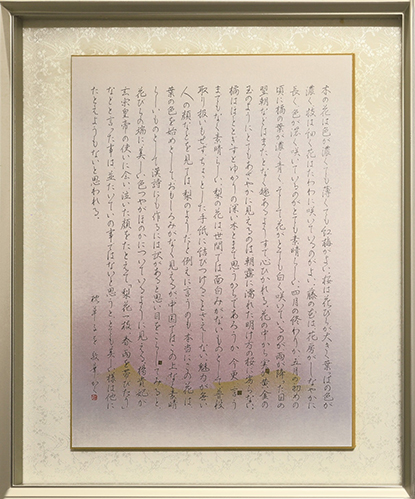 木の花は色が濃くても薄くても紅梅がよい桜は花びらが大きく葉っぱの色が
濃く枝は細く花はたわわに咲いているのがよい藤の花は花房がしなやかに
長く色が深く咲いているのがとても素晴らしく四月の終わりか五月の初めの
頃に橘の葉が濃く青くそして花がとても白く咲いているのが雨が降った日の
翌朝などはまたとなく趣あるようすで心ひかれる花の中から実が黄金の
玉のようにとてもあざやかに見えるのは朝露に濡れた明け方の桜に劣らない
橘はほととぎすとゆかりの深い木とまで思うからであろうか今更言う
までもなく素晴らしい梨の花は世間では面白みがないものとし普段
取り扱いもせずちょっとした手紙に結びつけることさえしない魅力が無い
人の顔などを見ては梨のようだと例えに言うのも本当にこの花は
葉の色を始めとしておもしろみがなく見えるが中国ではこの上なく素晴
らしいものとして漢詩にも作るには訳があると思い目をこらしてみると
花びらの端に美しい色つやがほのかについているように見える楊貴妃が
玄宗皇帝の使いに会い泣いた顔をたとえて梨花一枝春雨を帯びたり
などと言った事は並たいていの事ではないと思うととても美しい様は他に
たとえようもないと思われる。